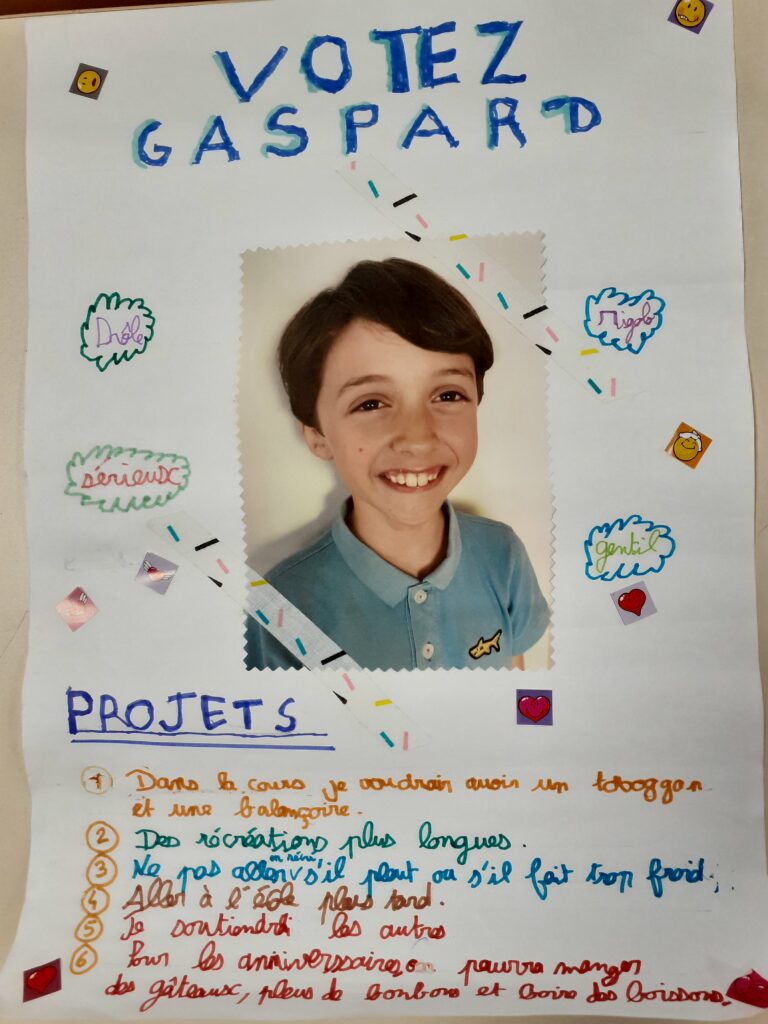 VOTEZ
GASPARD
Drôle
rigolo
sérieux
gentil
PROJETS
1 Dans la cours je voudrais avoir un toboggan
et une balançoire.
2 Des récréations plus longues.
3 Ne pas aller en récré s'il pleut ou s'il fait trop froid.
4 Aller à l'école plus tard.
5 Je soutiendrai les autres
6 Pour les anniversaires on pourra manger
des gâteaux, plus de bonbons et boire des boissons.